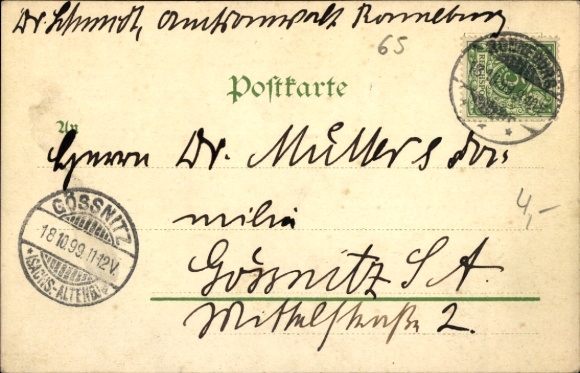 Dr. Schmidt, Amtsanwalt Ronneburg
65
RONNEBURG
REICHSPOST
Postkarte
An
Herrn Dr. Müller & Fa-
milie
4,-
GÖSSNITZ
18.10.99.11-12V.
*(SACHS-ALTENB)*
Gössnitz S. A.
Mittelstraße 2.